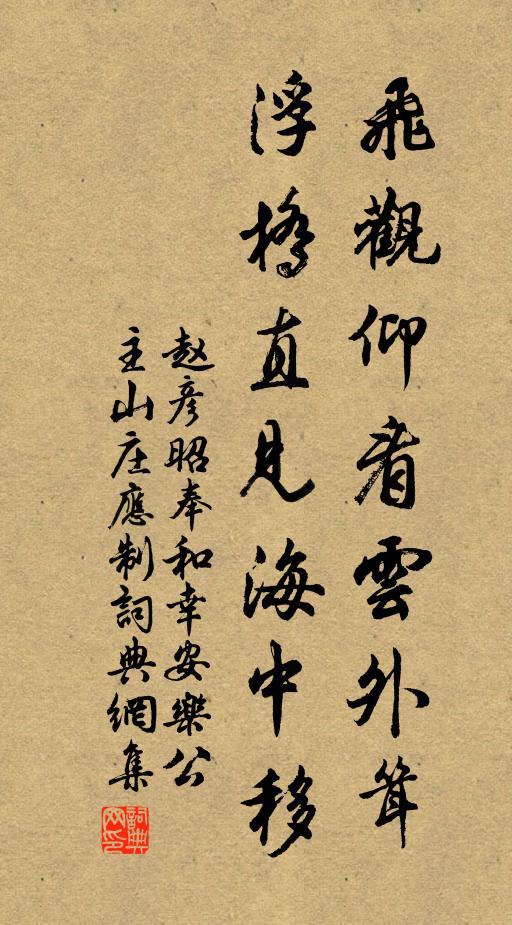 飛觀仰看雲外聳
浮橋直見海中移
赵彦昭奉和幸安樂公
主山庄應制詞典網集
詞典网印